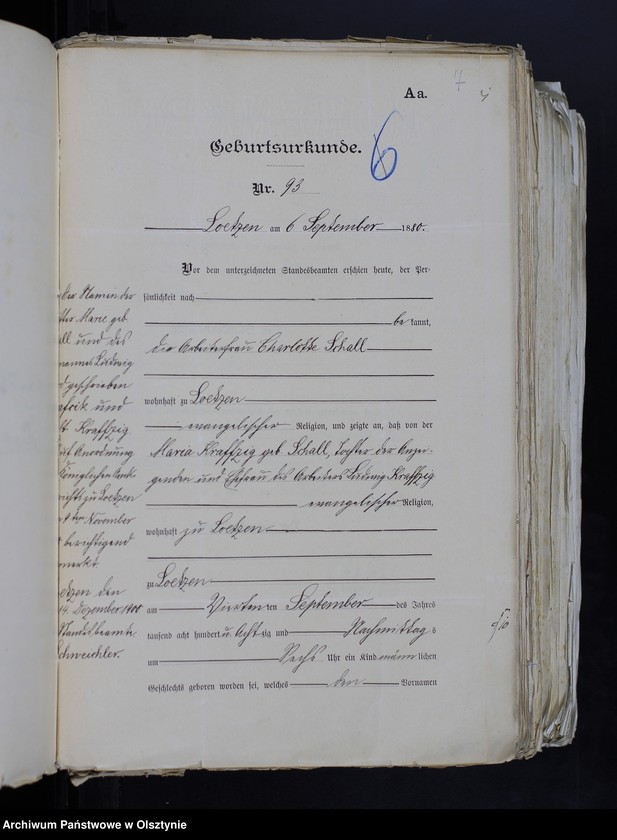 Aa.
7
6
Geburtsurkunde.
Nr. 93
Loetzen am 6 September 1880.
Vor dem unterzeichneten Standesbeamten erschien heute, der Per-
sönlichkeit nach
be kannt,
die Arbeiterfrau Charlotte Schall
wohnhaft zu Loetzen
evangelischer Religion, und zeigte an, daß von der
Maria Kraffzig geb. Schall, Tochter der Anzei-
genden und Ehefrau des Arbeiters Ludwig Kraffzig
evangelischer Religion,
wohnhaft zu Loetzen
zu Loetzen
am Vierten ten September des Jahres
tausend acht hundert u. Acht zig und Nachmittag s
um Sechs Uhr ein Kind männ lichen
Geschlechts geboren worden sei, welches den Vornamen
der Namen der
Marie geb.
all und des
mannes Ludwig
geschrieben
und
Kraffzig
Anordnung
Königlichen Amts
richts zu Loetzen
November
berichtigend
merkt
oetzen den
14. Dezember 1900
Standesbeamte
Schweichler.
Archiwum Państwowe w Olsztynie